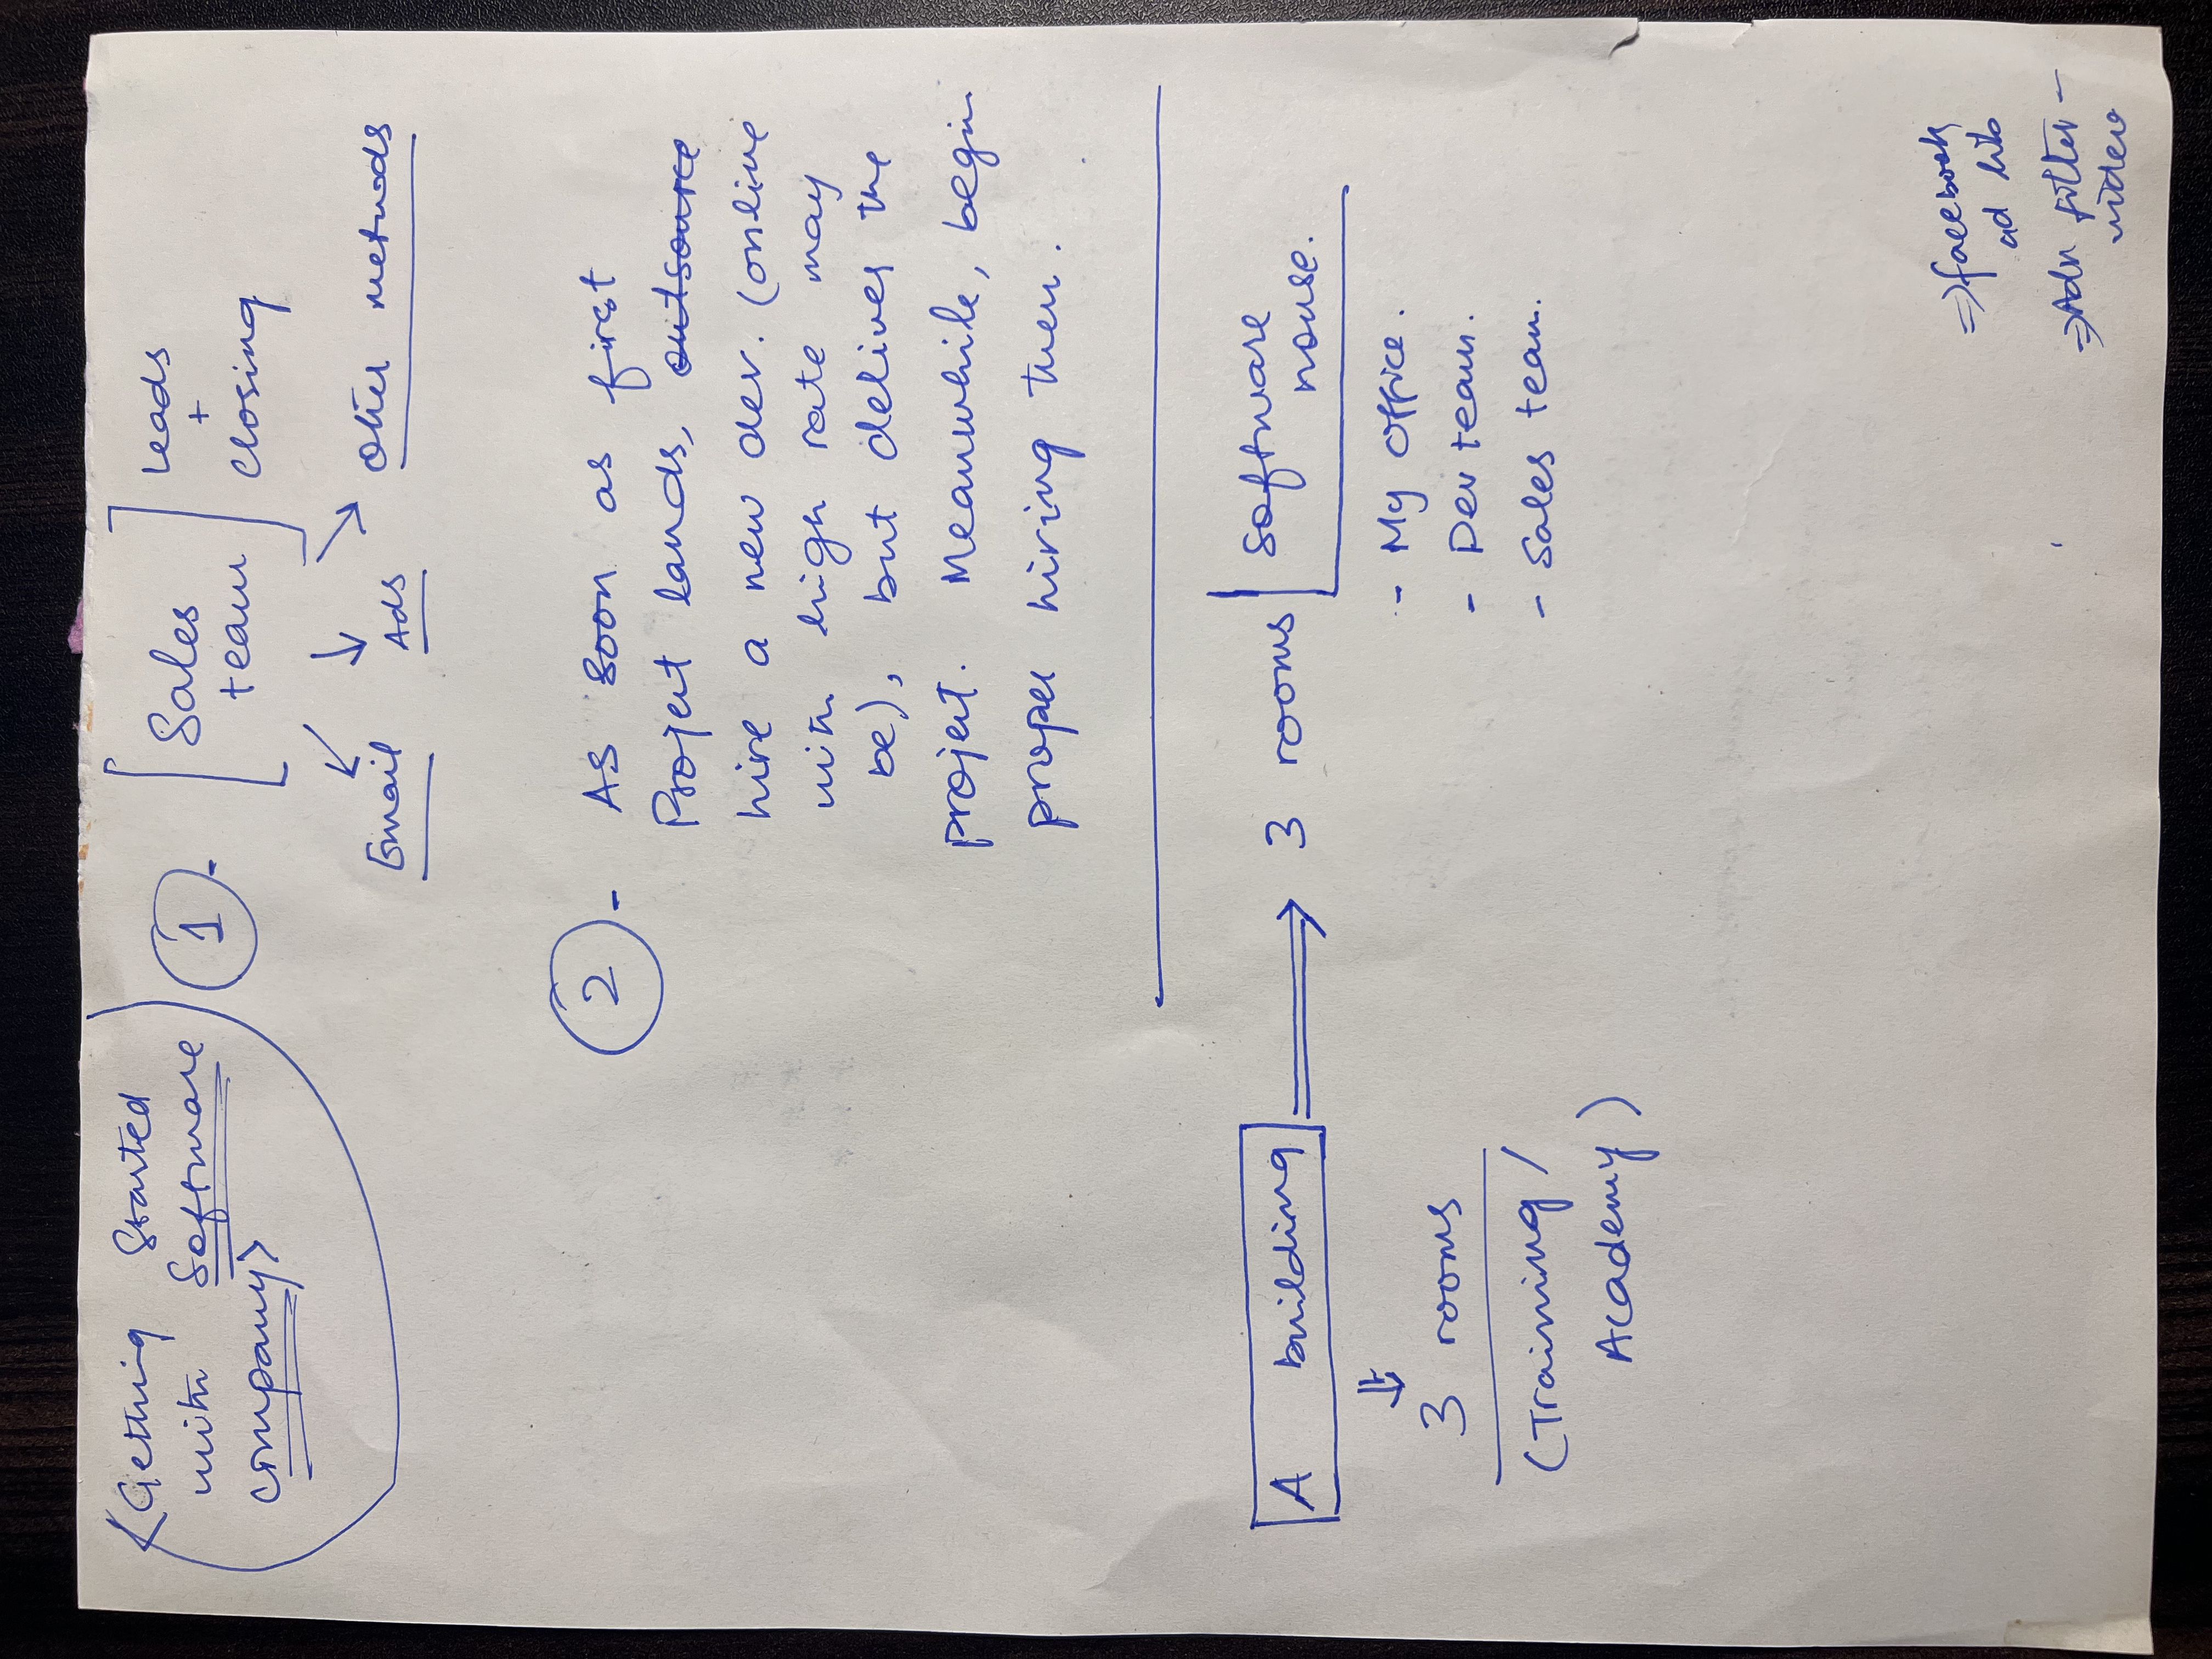 <Getting Started
with Software
company>
1. [Sales team] Leads + closing
Email
Ads
Other methods
2 - As soon as first
Project lands, outsource
hire a new dev. (online
with high rate may
be), but delivers the
project. Meanwhile, begin
proper hiring then.
A building ⇒ 3 rooms
Software
house.
- My office.
- Dev team.
- Sales team.
⇓
3 rooms
(Training /
Academy)
⇒ facebook
ad lib
⇒ filter -
video